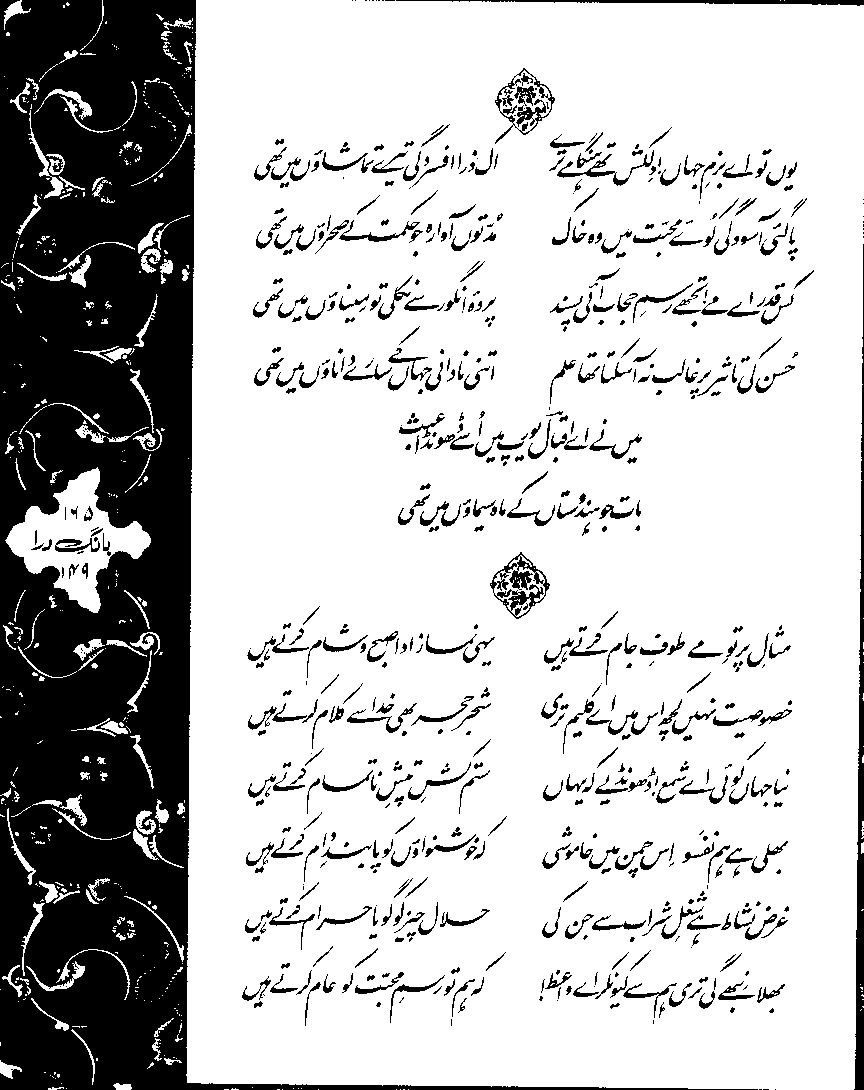 یوں تو اے بزمِ جہاں! دلکش تھے ہنگامے ترے اک ذرا افسردگی تیرے تماشاؤں میں تھی
پا گئی آسودگی کوئے محبّت میں وہ خاک مُدّتوں آوارہ جو حکمت کے صحراؤں میں تھی
کس قدر اے مے! تجھے رسمِ حجاب آئی پسند پردۂ انگور سے نکلی تو میناؤں میں تھی
حُسن کی تاثیر پر غالب نہ آ سکتا تھا علم اتنی نادانی جہاں کے سارے داناؤں میں تھی
میں نے اے اقبالؔ یورپ میں اُسے ڈھونڈا عبث
بات جو ہندوستاں کے ماہ سیماؤں میں تھی
۱۶۵
بانگِ درا
۱۴۹
مثالِ پرتوِ مے طوفِ جام کرتے ہیں یہی نماز ادا صبح و شام کرتے ہیں
خصوصیت نہیں کچھ اس میں اے کلیم تری شجر حجر بھی خدا سے کلام کرتے ہیں
نیا جہاں کوئی اے شمع! ڈھونڈیے کہ یہاں ستم کشِ تپشِ ناتمام کرتے ہیں
بھلی ہے ہم نفسو اِس چمن میں خاموشی کہ خوشنواؤں کو پابندِ دام کرتے ہیں
غرض نشاط ہے شغلِ شراب سے جن کی حلال چیز کو گویا حرام کرتے ہیں
بھلا نبھے گی تری ہم سے کیونکر اے واعظ! کہ ہم تو رسمِ محبّت کو عام کرتے ہیں